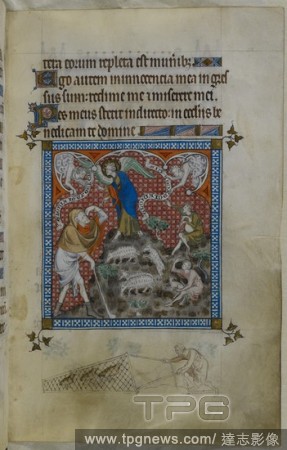 tera eorum repleta est munibz
Ego autem in innocencia mea ingres
sus sum: redime me miserere mei.
Pes meus stetit in directo: in ecclis be
nedicam te domine
TPG
www.tpgnews.com/ 達志影像